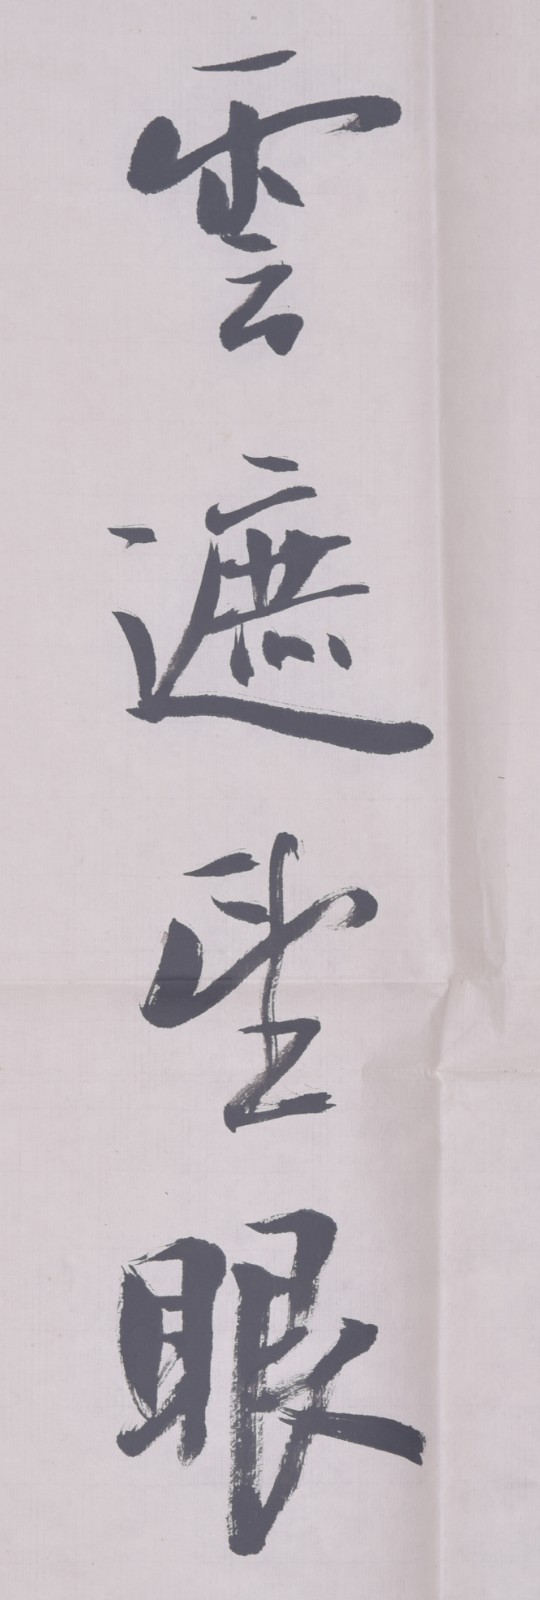 雲遮望眼